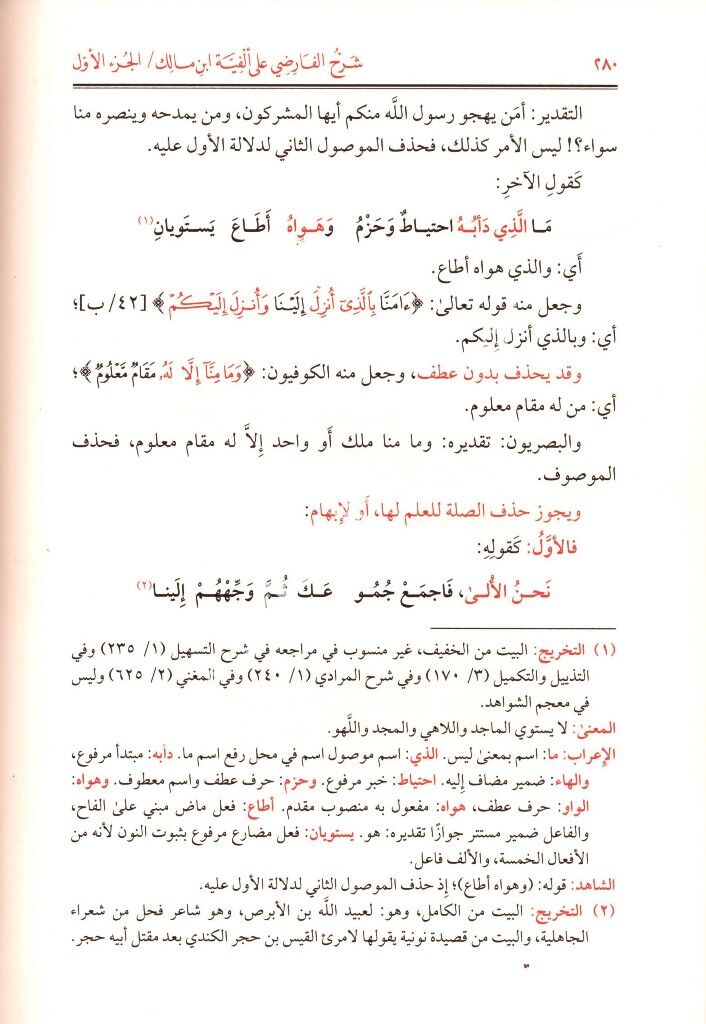 ٢٨٠ شرح الفارضي على ألفية ابن مالك/ الجزء الأول
التقدير: أمَن يهجو رسول اللَّه منكم أيها المشركون، ومن يمدحه وينصره منا
سواء؟! ليس الأمر كذلك، فحذف الموصول الثاني لدلالة الأول عليه.
كَقولِ الآخرِ:
مَـا الَّذِي دَأبُـهُ احتياطٌ وَحَزْمُ وَهَـواهُ أَطَـاعَ يَسـتَويانِ(١)
أَي: والذي هواه أطاع.
وجعل منه قوله تعالىٰ: ﴿ءَامَنَّا بِٱلَّذِىٓ أُنزِلَ إِلَيْنَا وَأُنزِلَ إِلَيْكُمْ﴾ [٤٢/ ب]؛
أي: وبالذي أنزل إليكم.
وقد يحذف بدون عطف، وجعل منه الكوفيون: ﴿وَمَا مِنَّآ إِلَّا لَهُۥ مَقَامٌ مَّعْلُومٌ﴾؛
أَي: من له مقام معلوم.
والبصريون: تقديره: وما منا ملك أَو واحد إِلاَّ له مقام معلوم، فحذف
الموصوف.
ويجوز حذف الصلة للعلم لها، أَو لإبهام:
فالأوَّلُ: كَقولِهِ:
نَحنُ الأُلىٰ، فَاجمَعْ جُمُو عَـكَ ثُـمَّ وَجِّهْهُـمْ إِلَينـا(٢)
(١) التخريج: البيت من الخفيف، غير منسوب في مراجعه في شرح التسهيل (١/ ٢٣٥) وفي
التذييل والتكميل (٣/ ١٧٠) وفي شرح المرادي (١/ ٢٤٠) وفي المغني (٢/ ٦٢٥) وليس
في معجم الشواهد.
المعنىٰ: لا يستوي الماجد واللاهي والمجد واللَّهو.
الإعراب: ما: اسم بمعنىٰ ليس. الذي: اسم موصول اسم في محل رفع اسم ما. دابه: مبتدأ مرفوع،
والهاء: ضمير مضاف إليه. احتياط: خبر مرفوع. وحزم: حرف عطف واسم معطوف. وهواه:
الواو: حرف عطف، هواه: مفعول به منصوب مقدم. أطاع: فعل ماض مبني علىٰ الفاح،
والفاعل ضمير مستتر جوازًا تقديره: هو. يستويان: فعل مضارع مرفوع بثبوت النون لأنه من
الأفعال الخمسة، والألف فاعل.
الشاهد: قوله: (وهواه أطاع)؛ إذ حذف الموصول الثاني لدلالة الأول عليه.
(٢) التخريج: البيت من الكامل، وهو: لعبيد اللَّه بن الأبرص، وهو شاعر فحل من شعراء
الجاهلية، والبيت من قصيدة نونية يقولها لامرئ القيس بن حجر الكندي بعد مقتل أبيه حجر.